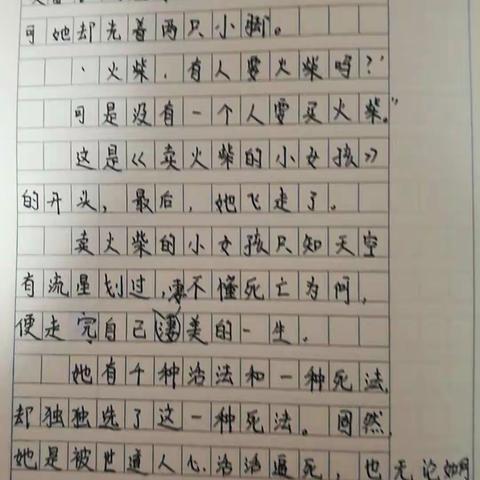 可她却光着两只小脚。
"火柴,有人要火柴吗?"
可是没有一个人要买火柴。"
这是《卖火柴的小女孩》
的开头,最后,她飞走了。
卖火柴的小女孩只知天空
有流星划过,不懂死亡为何,
便走完自己凄美的一生。
她有千种活法和一种死法,
却独独选了这一种死法。固然,
她是被世道人心活活逼死,也无论如何